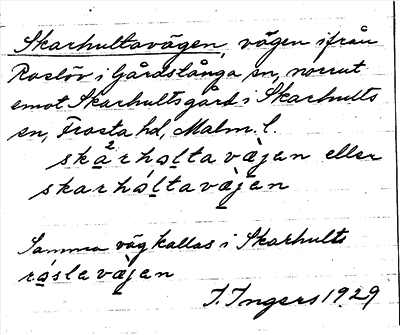 Skarhultavägen, vägen ifrån
Roslöv i Gårdstånga sn, norrut
emot Skarhultsgård i Skarhults
sn, Frosta hd, Malm. l.
ska²rhọltavæ̣jan eller
skarhọ́ḷtavæ̣jan
Samma väg kallas i Skarhults
rọslavæ̀jan
I. Ingers 1929